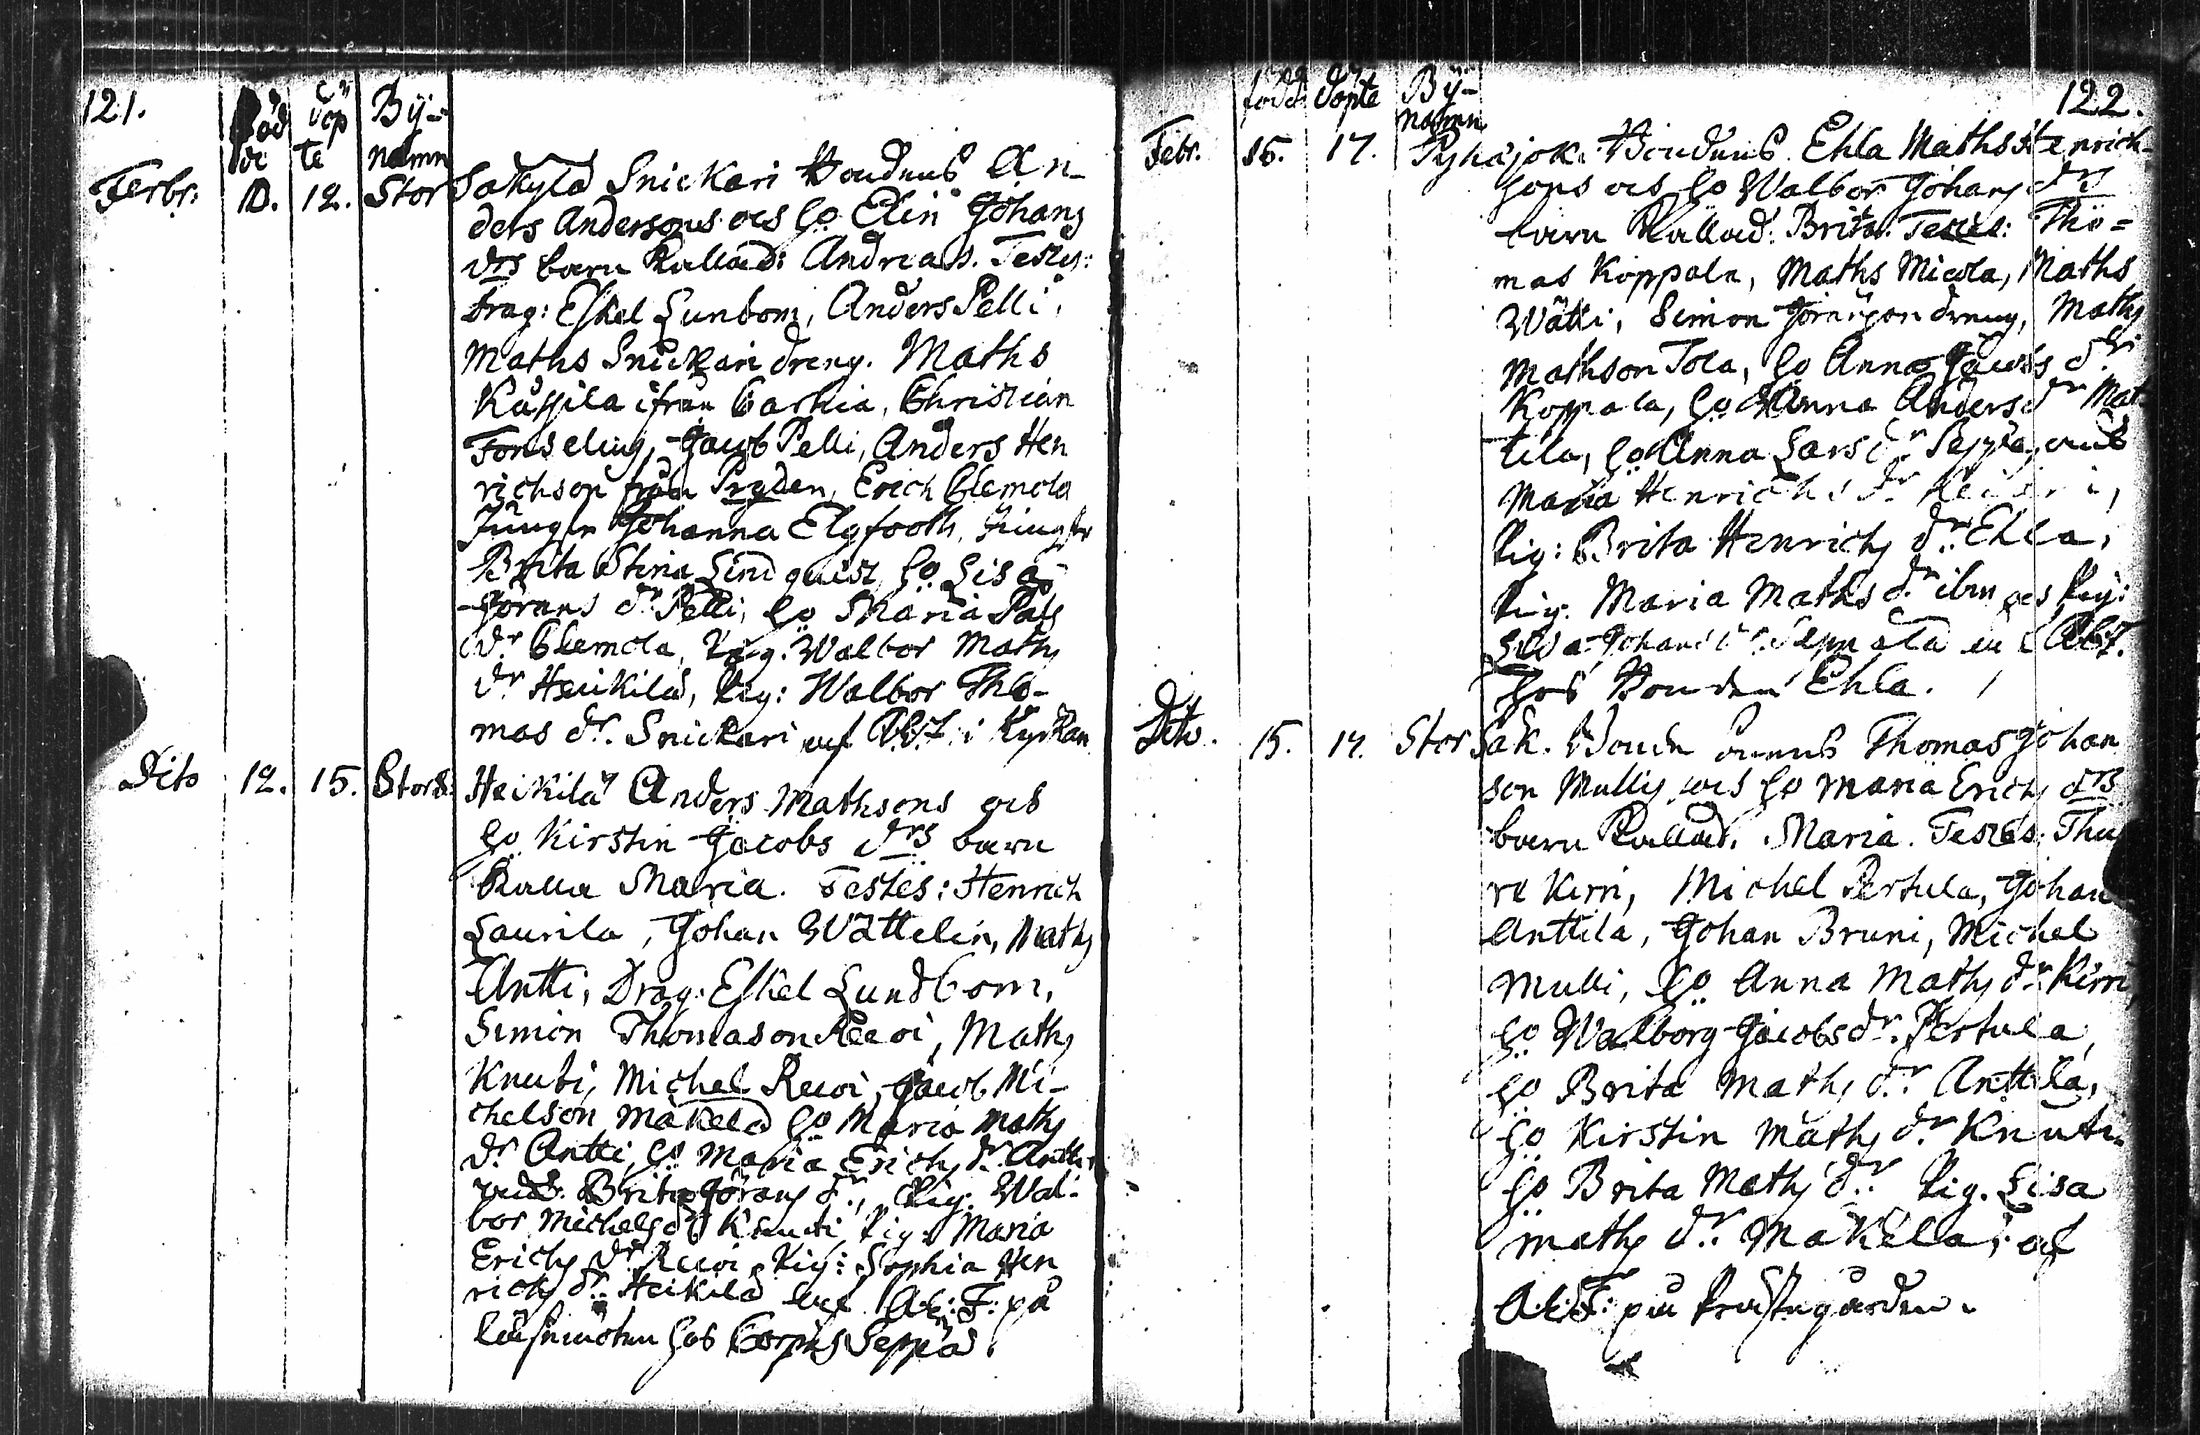 121.
Föd
de
döp
te
Bÿ-
namn
Ferbr: 10. 12. Stor Säkylä Snickari Bondens An-
ders Andersons och ho Elin Johans
drs barn kallad: Andreas. Testes:
drag: Eskel Lundbom, Anders Pelli,
Maths Snickari dreng. Maths
Kässila ifrån Carhia, Christian
Forselius, Jacob Pelli, Anders Hen
richson från Pryden, Erich Clemola
Jungfr Johanna Elgfooth, Jungfr
Brita Stina Lindquist, ho Lisa
Jörans dr Pelli, ho Maria Påls
dr Clemola, Pig: Walbor Maths
dr Heikilä, Pig: Walbor Tho-
mas dr. Snickari af Ab: F. i Kyrkan
Dito 12. 15. Stors: Heikilä Anders Mathsons och
ho Kirstin Jacobs drs barn
kallad Maria. Testes: Henrich
Laurila, Johan Wättelin, Maths
Antti, Drag: Eskel Lundbom,
Simon Thomason Rewi, Maths
Knuti, Michel Rewi, Jacob Mi-
chelson Mäkelä ho Maria Maths
dr Antti, ho Maria Erichs dr Antti
och Brita Jörans dr, Pig: Wal-
bor Michels dr Knuti, Pig: Maria
Erichs dr Rewi Pig: Sophia Hen
richs dr. Heikilä af Ab: F: på
läsemöten hos Corpus Seppä.
122.
född döpte Bÿ-
namn
Febr. 16. 17. Pyhäjok: Bondens Ehla Maths Henrich-
sons och ho Walbor Johans drs
barn kallad: Brita. Testes: Tho=
mas Koppala, Maths Micola, Maths
Wätti, Simon Jöransson dreng, Maths
Mathson Tola, ho Anna Jacobs dr
Koppala, ho Anna Anders dr Mat
tila, ho Anna Lars dr Seppä, och
Maria Henrichs dr
Pig: Brita Henrichs dr Ehla,
Pig: Maria Maths dr ibm och Pig:
Johans dr af Ab: F.
hos Bonden Ehla.
Dito. 15. 17. Stor Säk. Bonde Thomas Johan
son Mullis och ho Maria Erichs drs
barn kallad. Maria. Testes: Thu
re Kirri, Michel Pertula, Johan
Anttila, Johan Bruni, Michel
Mulli, ho Anna Maths dr Kirri,
ho Walborg Jacobs dr. Pertula,
ho Brita Maths dr Anttila,
ho Kirstin Maths dr Knuti.
ho Brita Maths dr. Pig. Lisa
Maths dr. Mäkelä, af
Ab: F: på Prästegården.